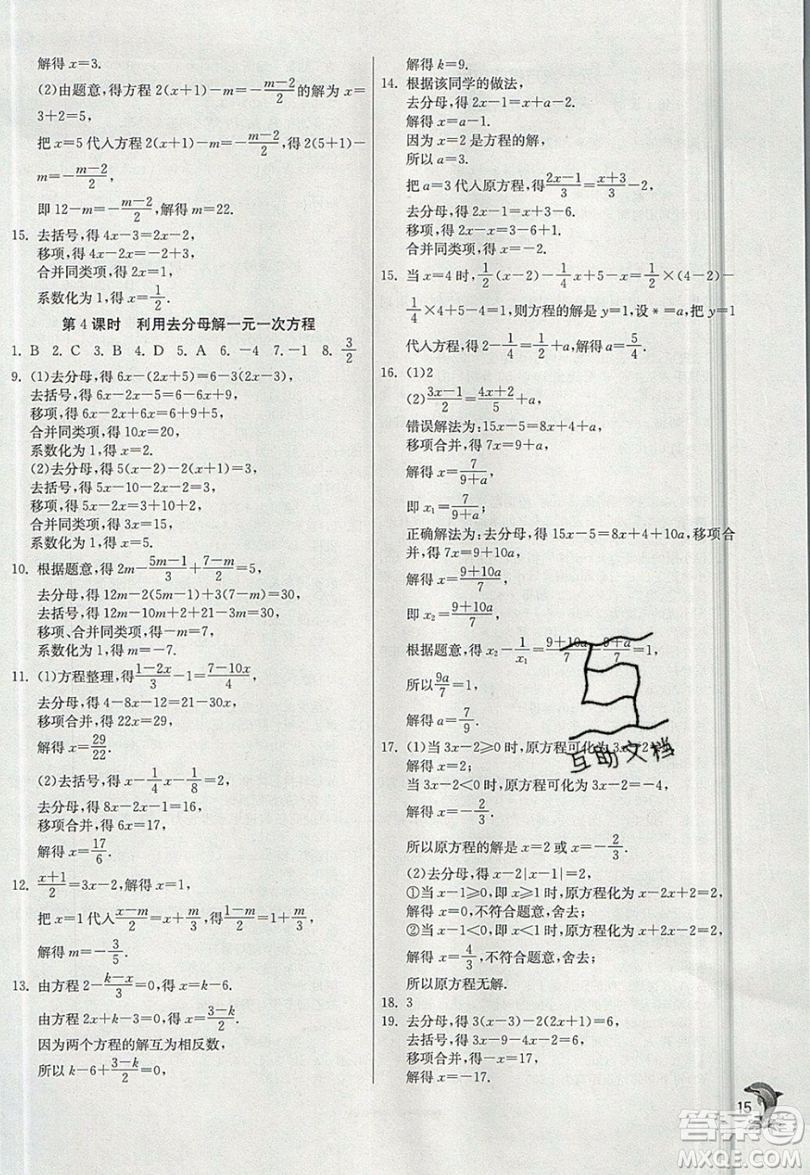 解得 x=3.
(2)由题意,得方程 2(x+1)-m=-\frac{m-2}{2}的解为 x=
3+2=5,
把 x=5 代入方程 2(x+1)-m=-\frac{m-2}{2},得 2(5+1)-
m=-\frac{m-2}{2},
即 12-m=-\frac{m-2}{2},解得 m=22.
15. 去括号,得 4x-3=2x-2,
移项,得 4x-2x=-2+3,
合并同类项,得 2x=1,
系数化为 1,得 x=\frac{1}{2}.
第 4 课时 利用去分母解一元一次方程
1. B 2. C 3. B 4. D 5. A 6. -4 7. -1 8. \frac{3}{2}
9. (1)去分母,得 6x-(2x+5)=6-3(2x-3),
去括号,得 6x-2x-5=6-6x+9,
移项,得 6x-2x+6x=6+9+5,
合并同类项,得 10x=20,
系数化为 1,得 x=2.
(2)去分母,得 5(x-2)-2(x+1)=3,
去括号,得 5x-10-2x-2=3,
移项,得 5x-2x=3+10+2,
合并同类项,得 3x=15,
系数化为 1,得 x=5.
10. 根据题意,得 2m-\frac{5m-1}{3}+\frac{7-m}{2}=5,
去分母,得 12m-2(5m-1)+3(7-m)=30,
去括号,得 12m-10m+2+21-3m=30,
移项、合并同类项,得-m=7,
系数化为 1,得 m=-7.
11. (1)方程整理,得\frac{1-2x}{3}-1=\frac{7-10x}{4},
去分母,得 4-8x-12=21-30x,
移项合并,得 22x=29,
解得 x=\frac{29}{22}.
(2)去括号,得 x-\frac{1}{4}x-\frac{1}{8}=2,
去分母,得 8x-2x-1=16,
移项合并,得 6x=17,
解得 x=\frac{17}{6}.
12. \frac{x+1}{2}=3x-2,解得 x=1,
把 x=1 代入\frac{x-m}{2}=x+\frac{m}{3},得\frac{1-m}{2}=1+\frac{m}{3},
解得 m=-\frac{3}{5}.
13. 由方程 2-\frac{k-x}{3}=0,得 x=k-6.
由方程 2x+k-3=0,得 x=\frac{3-k}{2}.
因为两个方程的解互为相反数,
所以 k-6+\frac{3-k}{2}=0,
解得 k=9.
14. 根据该同学的做法,
去分母,得 2x-1=x+a-2.
解得 x=a-1.
因为 x=2 是方程的解,
所以 a=3.
把 a=3 代入原方程,得\frac{2x-1}{3}=\frac{x+3}{3}-2,
去分母,得 2x-1=x+3-6.
移项合并,得 x=-2.
15. 当 x=4 时,\frac{1}{2}(x-2)-\frac{1}{4}x+5-x=\frac{1}{2}×(4-2)-
\frac{1}{4}×4+5-4=1,则方程的解是 x=1,设 *=a,把 x=1
代入方程,得 2-\frac{1}{4}=\frac{1}{2}+a,解得 a=\frac{5}{4}.
16. (1)2
(2)\frac{3x-1}{2}=\frac{4x+2}{5}+a,
错误解法为:15x-5=8x+4+a,
移项合并,得 7x=9+a,
解得 x=\frac{9+a}{7},
即 x₁=\frac{9+a}{7};
正确解法为:去分母,得 15x-5=8x+4+10a,移项合
并,得 7x=9+10a,
解得 x=\frac{9+10a}{7},
即 x₂=\frac{9+10a}{7},
根据题意,得 x₂-\frac{1}{x₁}=\frac{9+10a}{7}-\frac{7}{9+a}=1,
所以\frac{9a}{7}=1,
解得 a=\frac{7}{9}.
17. (1)当 3x-2≥0 时,原方程可化为 3x-2=4,
解得 x=2;
当 3x-2<0 时,原方程可化为 3x-2=-4,
解得 x=-\frac{2}{3}.
所以原方程的解是 x=2 或 x=-\frac{2}{3}.
(2)去分母,得 x-2|x-1|=2,
①当 x-1≥0 时,原方程化为 x-2x+2=2,
解得 x=0,不符合题意,舍去;
②当 x-1<0 时,原方程化为 x-2+2x=2,
解得 x=\frac{4}{3},不符合题意,舍去;
所以原方程无解.
18. 3
19. 去分母,得 3(x-3)-2(2x+1)=6,
去括号,得 3x-9-4x-2=6,
移项合并,得-x=17,
解得 x=-17.
互助文档
15
答案圈
MXQE.COM